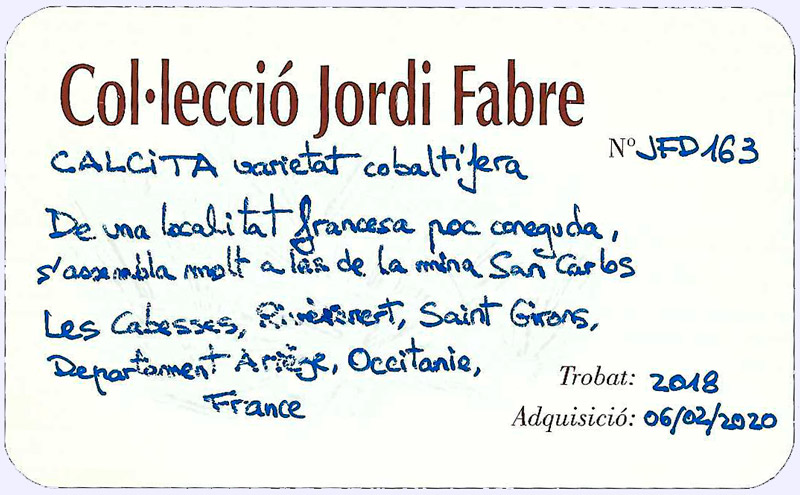 Col·lecció Jordi Fabre
Nº JFD163
CALCITA varietat cobaltifera
De una localitat francesa poc coneguda,
s'assembla molt a las de la mina San Carlos
Les Cabesses, Rivèrenert, Saint Girons,
Departament Ariège, Occitanie,
France
Trobat: 2018
Adquisició: 06/02/2020